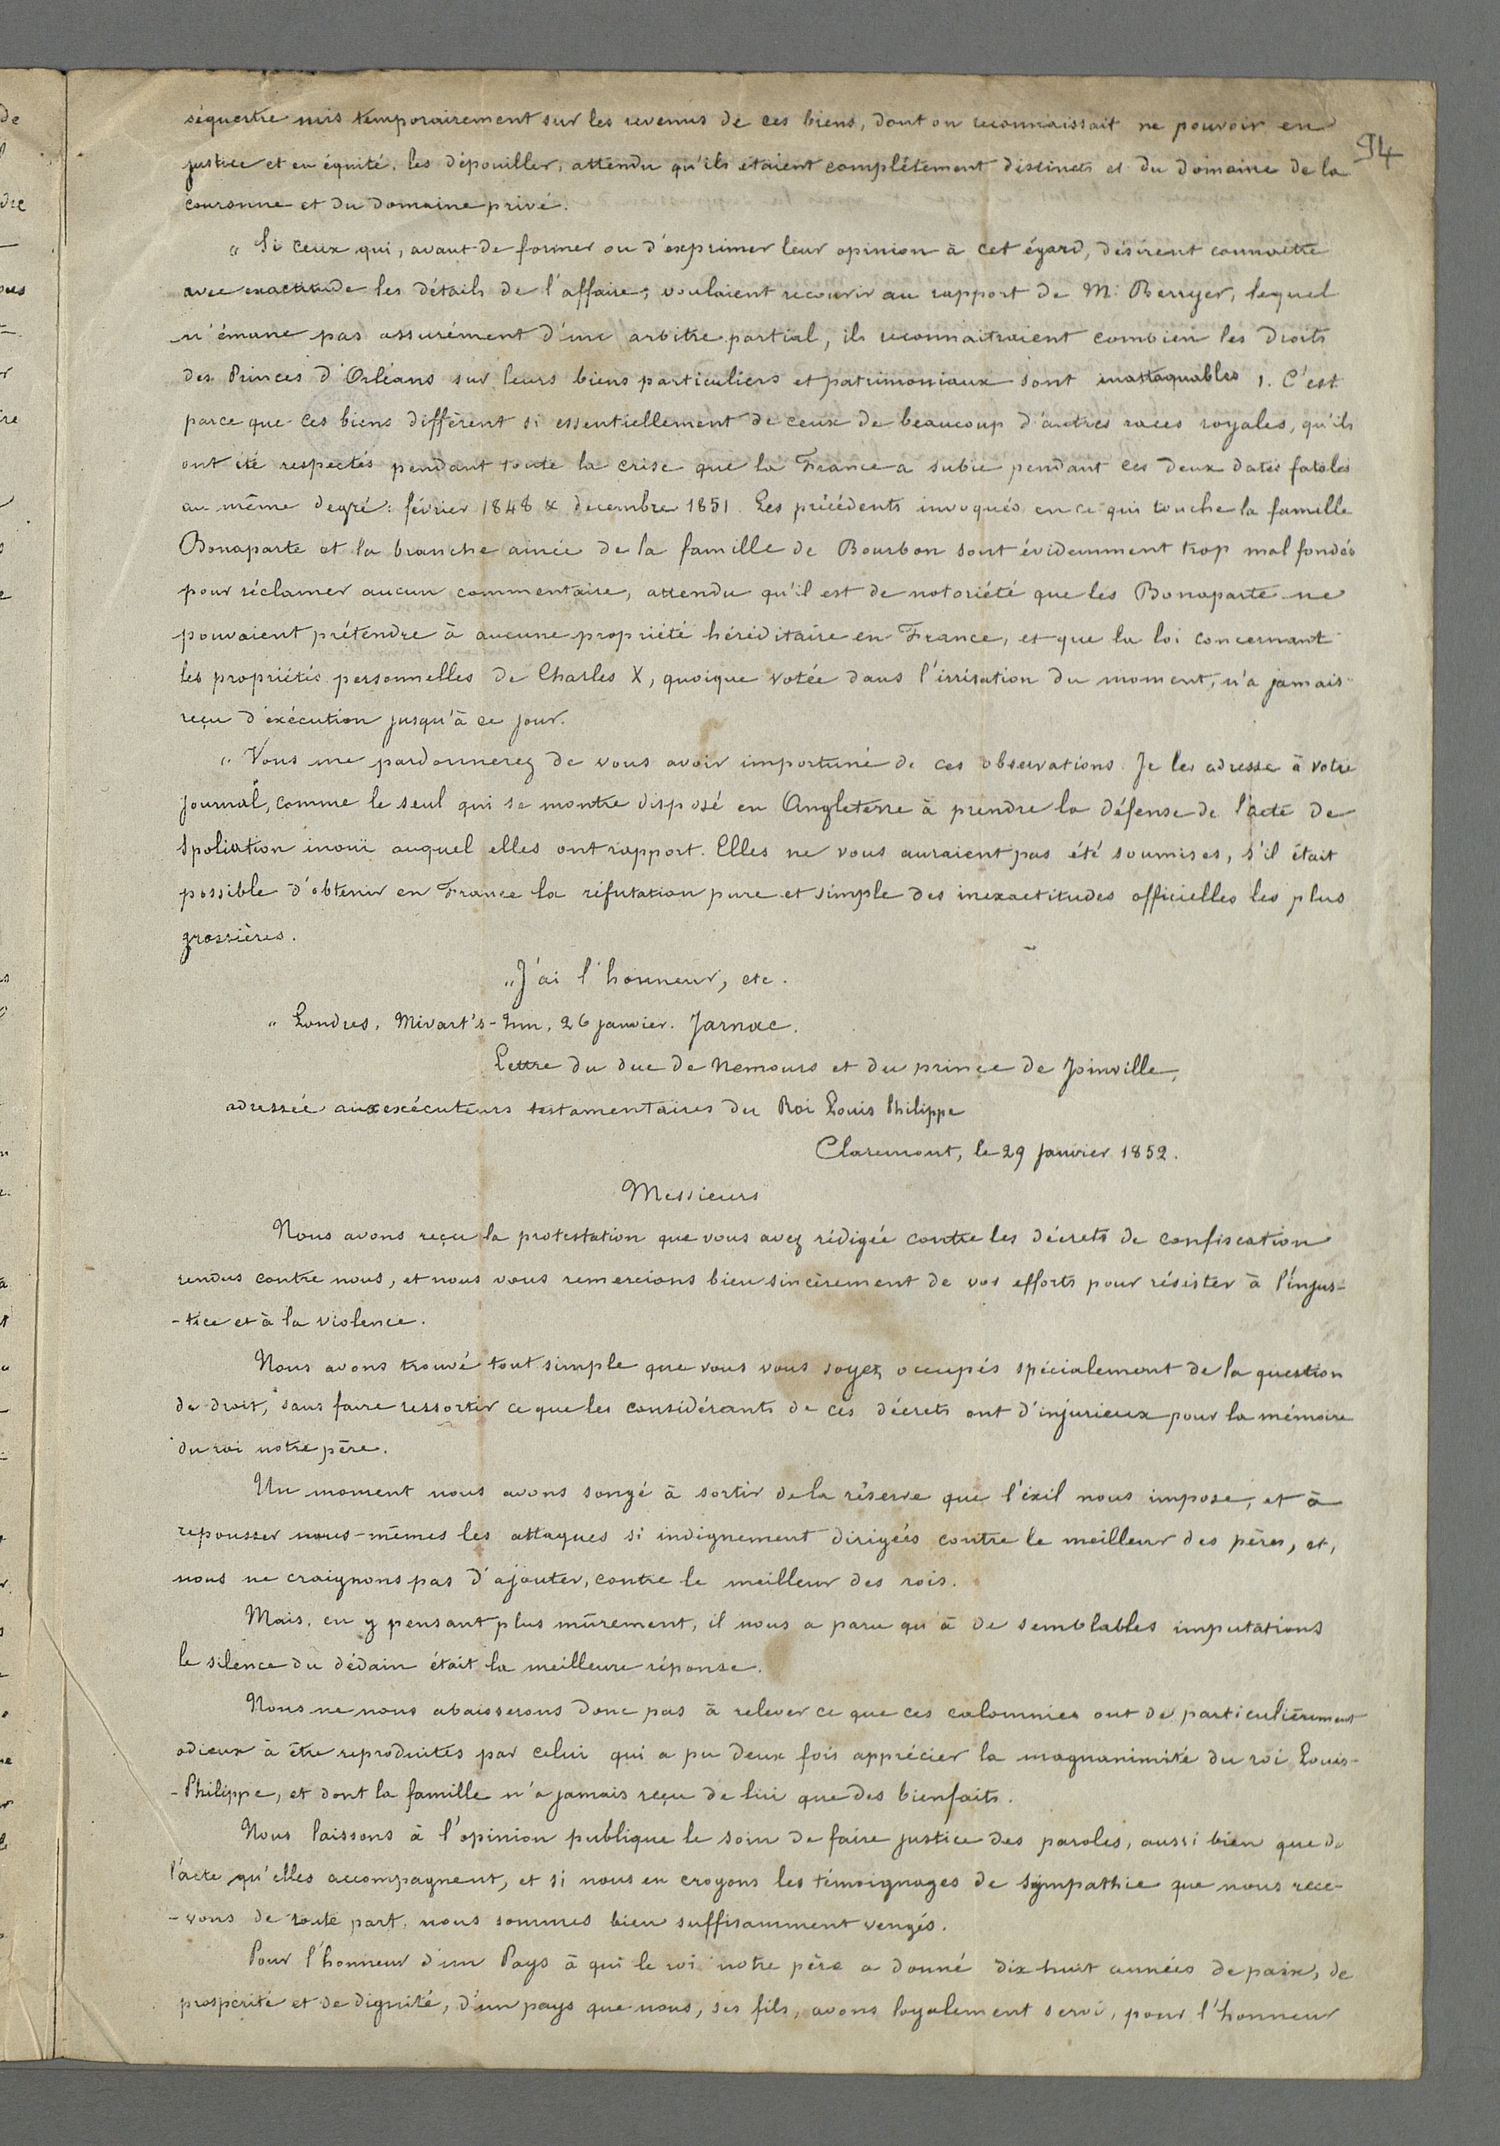 94
séquestre mis temporairement sur les revenus de ces biens, dont on reconnaissait ne pouvoir en
justice et en équité, les dépouiller, attendu qu'ils étaient complétement distincts et du domaine de la
couronne et du domaine privé.
" Si ceux qui, avant de former ou d'exprimer leur opinion à cet égard, désirent connaître
avec exactitude les détails de l'affaire, voulaient recourir au rapport de Mr Berryer, lequel
n'émane pas assurément d'une arbitre partial, ils reconnaitraient combien les droits
des Princes d'Orléans sur leurs biens particuliers et patrimoniaux sont inattaquables. C'est
parce que ces biens diffèrent si essentiellement de ceux de beaucoup d'autres races royales, qu'ils
ont été respectés pendant toute la crise que la France a subie pendant ces deux dates fatales
au même degré : février 1848 & decembre 1851. Les précédents invoqués en ce qui touche la famille
Bonaparte et la branche ainée de la famille de Bourbon sont évidemment trop mal fondés
pour réclamer aucun commentaire, attendu qu'il est de notoriété que les Bonaparte ne
pouvaient prétendre à aucune propriété héréditaire en France, et que la loi concernant
les propriétés personnelles de Charles X, quoique votée dans l'irritation du moment, n'a jamais
reçu d'exécution jusqu'à ce jour.
" Vous me pardonnerez de vous avoir importuné de ces observations. Je les adresse à votre
journal, comme le seul qui se montre disposé en Angleterre à prendre la défense de l'acte de
spoliation inouï auquel elles ont rapport. Elles ne vous auraient pas été soumises, s'il était
possible d'obtenir en France la réfutation pure et simple des inexactitudes officielles les plus
grossières.
" J'ai l'honneur, etc.
" Londres, Mivart's-Inn, 26 janvier. Jarnac.
Lettre du duc de Nemours et du prince de Joinville,
adressée aux exécuteurs testamentaires du Roi Louis Philippe
Claremont, le 29 Janvier 1852.
Messieurs
Nous avons reçu la protestation que vous avez rédigée contre les décrets de confiscation
rendus contre nous, et nous vous remercions bien sincèrement de vos efforts pour résister à l'injus-
-tice et à la violence.
Nous avons trouvé tout simple que vous vous soyez occupés spécialement de la question
de droit, sans faire ressortir ce que les considérants de ces décrets ont d'injurieux pour la mémoire
du roi notre père.
Un moment nous avons songé à sortir de la réserve que l'éxil nous impose, et à
repousser nous-mêmes les attaques si indignement dirigées contre le meilleur des pères, et,
nous ne craignons pas d'ajouter, contre le meilleur des rois.
Mais, en y pensant plus mûrement, il nous a paru qu'à de semblables imputations
le silence du dédain était la meilleure réponse.
Nous ne nous abaisserons donc pas à relever ce que ces calomnies ont de particulièrement
odieux à être reproduites par celui qui a pu deux fois apprécier la magnanimité du roi Louis-
-Philippe, et dont la famille n'a jamais reçu de lui que des bienfaits.
Nous laissons à l'opinion publique le soin de faire justice des paroles, aussi bien que de
l'acte qu'elles accompagnent, et si nous en croyons les témoignages de sympathie que nous rece-
-vons de toute part, nous sommes bien suffisamment vengés.
Pour l'honneur d'un Pays à qui le roi notre père a donné dix huit années de paix, de
prospérité et de dignité, d'un pays que nous, ses fils, avons loyalement servi, pour l'honneur